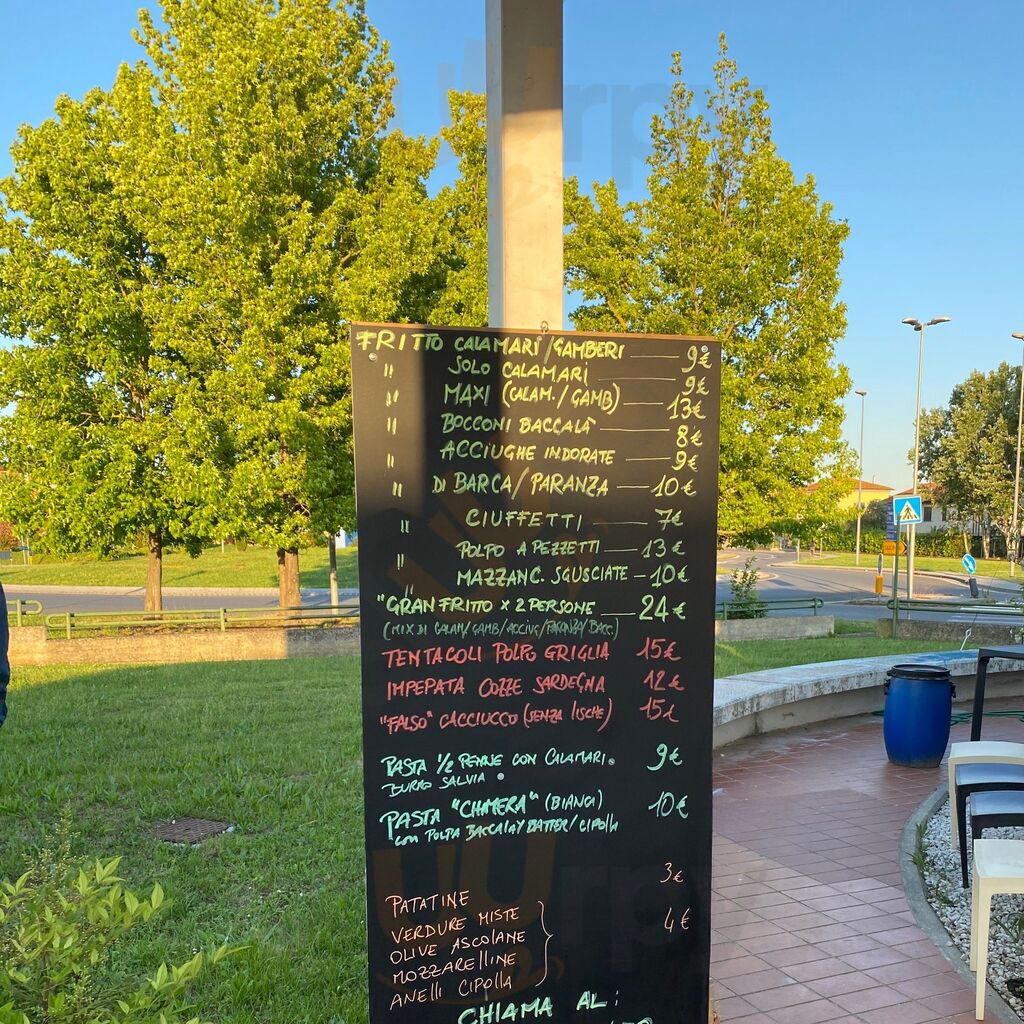 FRITTO CALAMARI/GAMBERI 9€
" SOLO CALAMARI 9€
" MAXI (CALAM./GAMB) 13€
" BOCCONI BACCALÀ 8€
" ACCIUGHE INDORATE 9€
" DI BARCA/PARANZA 10€
" CIUFFETTI 7€
" POLPO A PEZZETTI 13€
" MAZZANC. SGUSCIATE 10€
"GRAN FRITTO x 2 PERSONE 24€
(MIX DI CALAM/GAMB/ACCIUG/PARANZA/BACC.)
TENTACOLI POLPO GRIGLIA 15€
IMPEPATA COZZE SARDEGNA 12€
"FALSO" CACCIUCCO (SENZA LISCHE) 15€
PASTA 1/2 PENNE CON CALAMARI 9€
BURRO SALVIA
PASTA "CHIMERA" (BIANCI) 10€
CON POLPA BACCALÀ / CIPOLLA
PATATINE 3€
VERDURE MISTE 4€
OLIVE ASCOLANE
MOZZARELLINE
ANELLI CIPOLLA
CHIAMA AL: